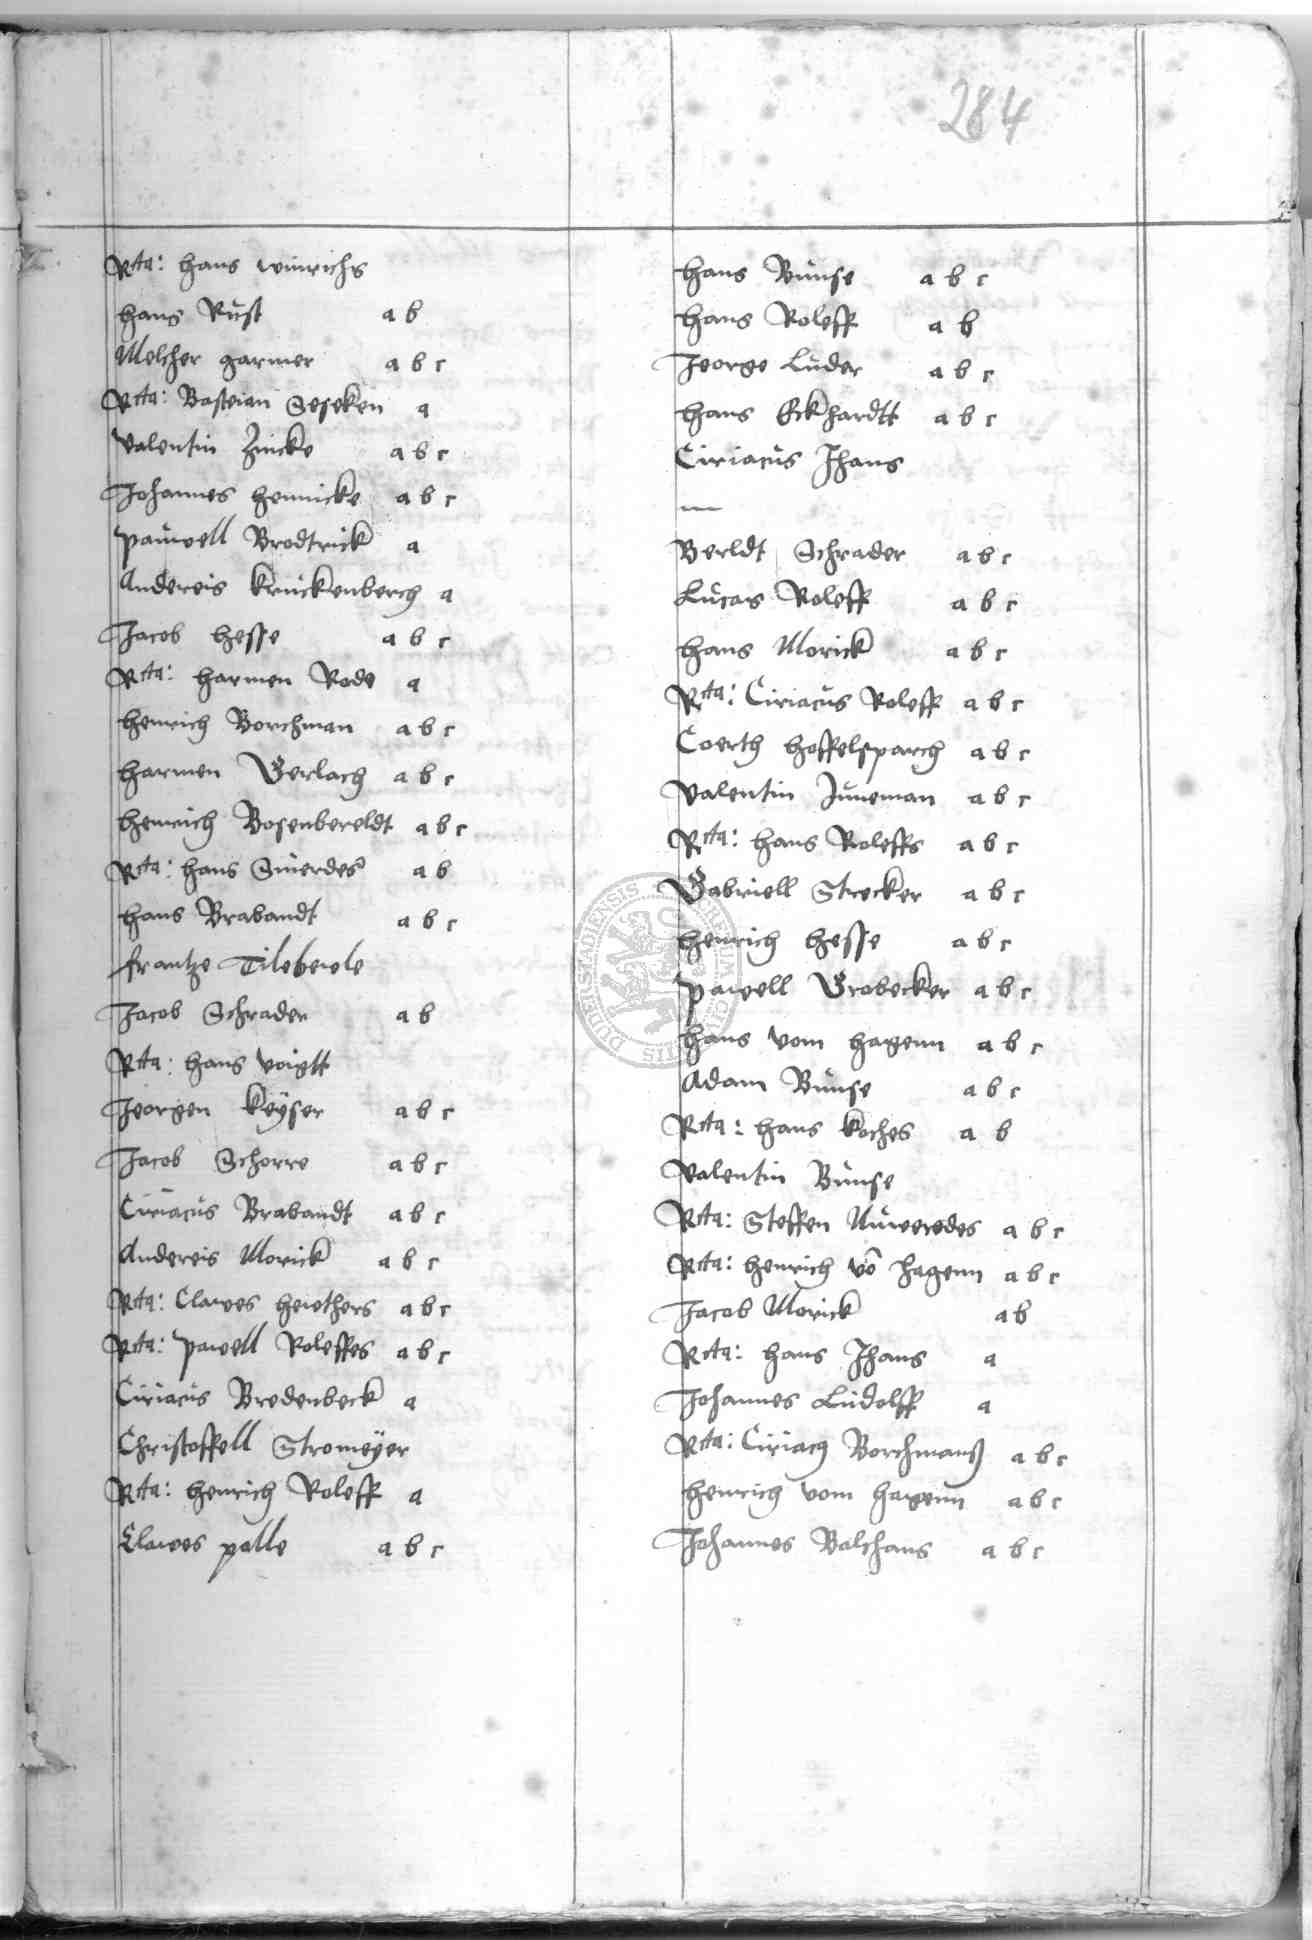 284
Rcta: Hans Winrichs
Hans Rust a b
Melcher Garmer a b c
Rcta: Basteian Geseken a
Valentin Zincke a b c
Johannes Hennicke a b c
Pauwell Brodtrick a
Andereis Kruckenberch a
Jacob Hesse a b c
Rcta: Harmen Rode a
Henrich Borchman a b c
Harmen Gerlach a b c
Henrich Bosenbereldt a b c
Rcta: Hans a b
Hans Brabandt a b c
Frantze Tilebeele
Jacob Schrader a b
Rcta: Hans Voigtt
Jeorgen Keÿser a b c
Jacob Schorre a b c
Ciriacus Brabandt a b c
Andereis Morick a b c
Rcta: Clawes a b c
Rcta: Pawell Roleffes a b c
Ciriacus Bredenbeck a
Christoffell Stromeÿer
Rcta: Henrich Roleff a
Clawes Polle a b c
Hans Bunse a b c
Hans Roleff a b
Jeorge Luder a b c
Hans Eckhardtt a b c
Ciriacus Jhans
Berldt Schrader a b c
Lucas Roleff a b c
Hans Morick a b c
Rcta: Ciriacus Roleff a b c
Coerth Hoffelsparch a b c
Valentin Juneman a b c
Rcta: Hans Roleffs a b c
Gabriell Strecker a b c
Henrich Hesse a b c
Pawell Grobecker a b c
Hans vom Hagenn a b c
Adam Bunse a b c
Rcta: Hans Koches a b
Valentin Bunse
Rcta: Steffen Nuweredes a b c
Rcta: Henrich vō Hagenn a b c
Jacob Morick a b
Rcta: Hans Jhans a
Johannes Ludolff a
Rcta: Ciriacus Borchmans a b c
Henrich vom Hagenn a b c
Johannes Balthans a b c